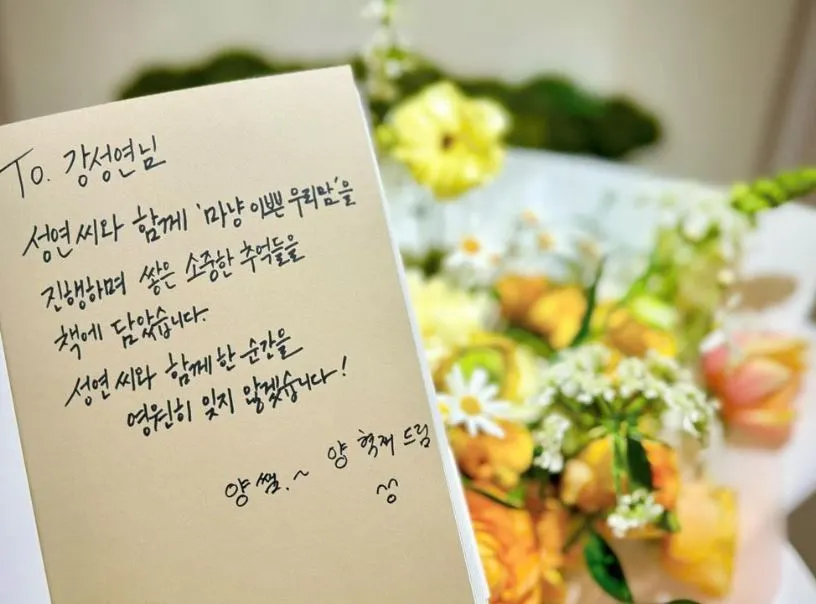 To. 강성연님
성연 씨와 함께 '마냥 이쁜 우리맘'을
진행하며 쌓은 소중한 추억들을
책에 담았습니다.
성연 씨와 함께 한 순간을
영원히 잊지 않겠습니다!
양쌤.~ 양 혁재 드림
^^